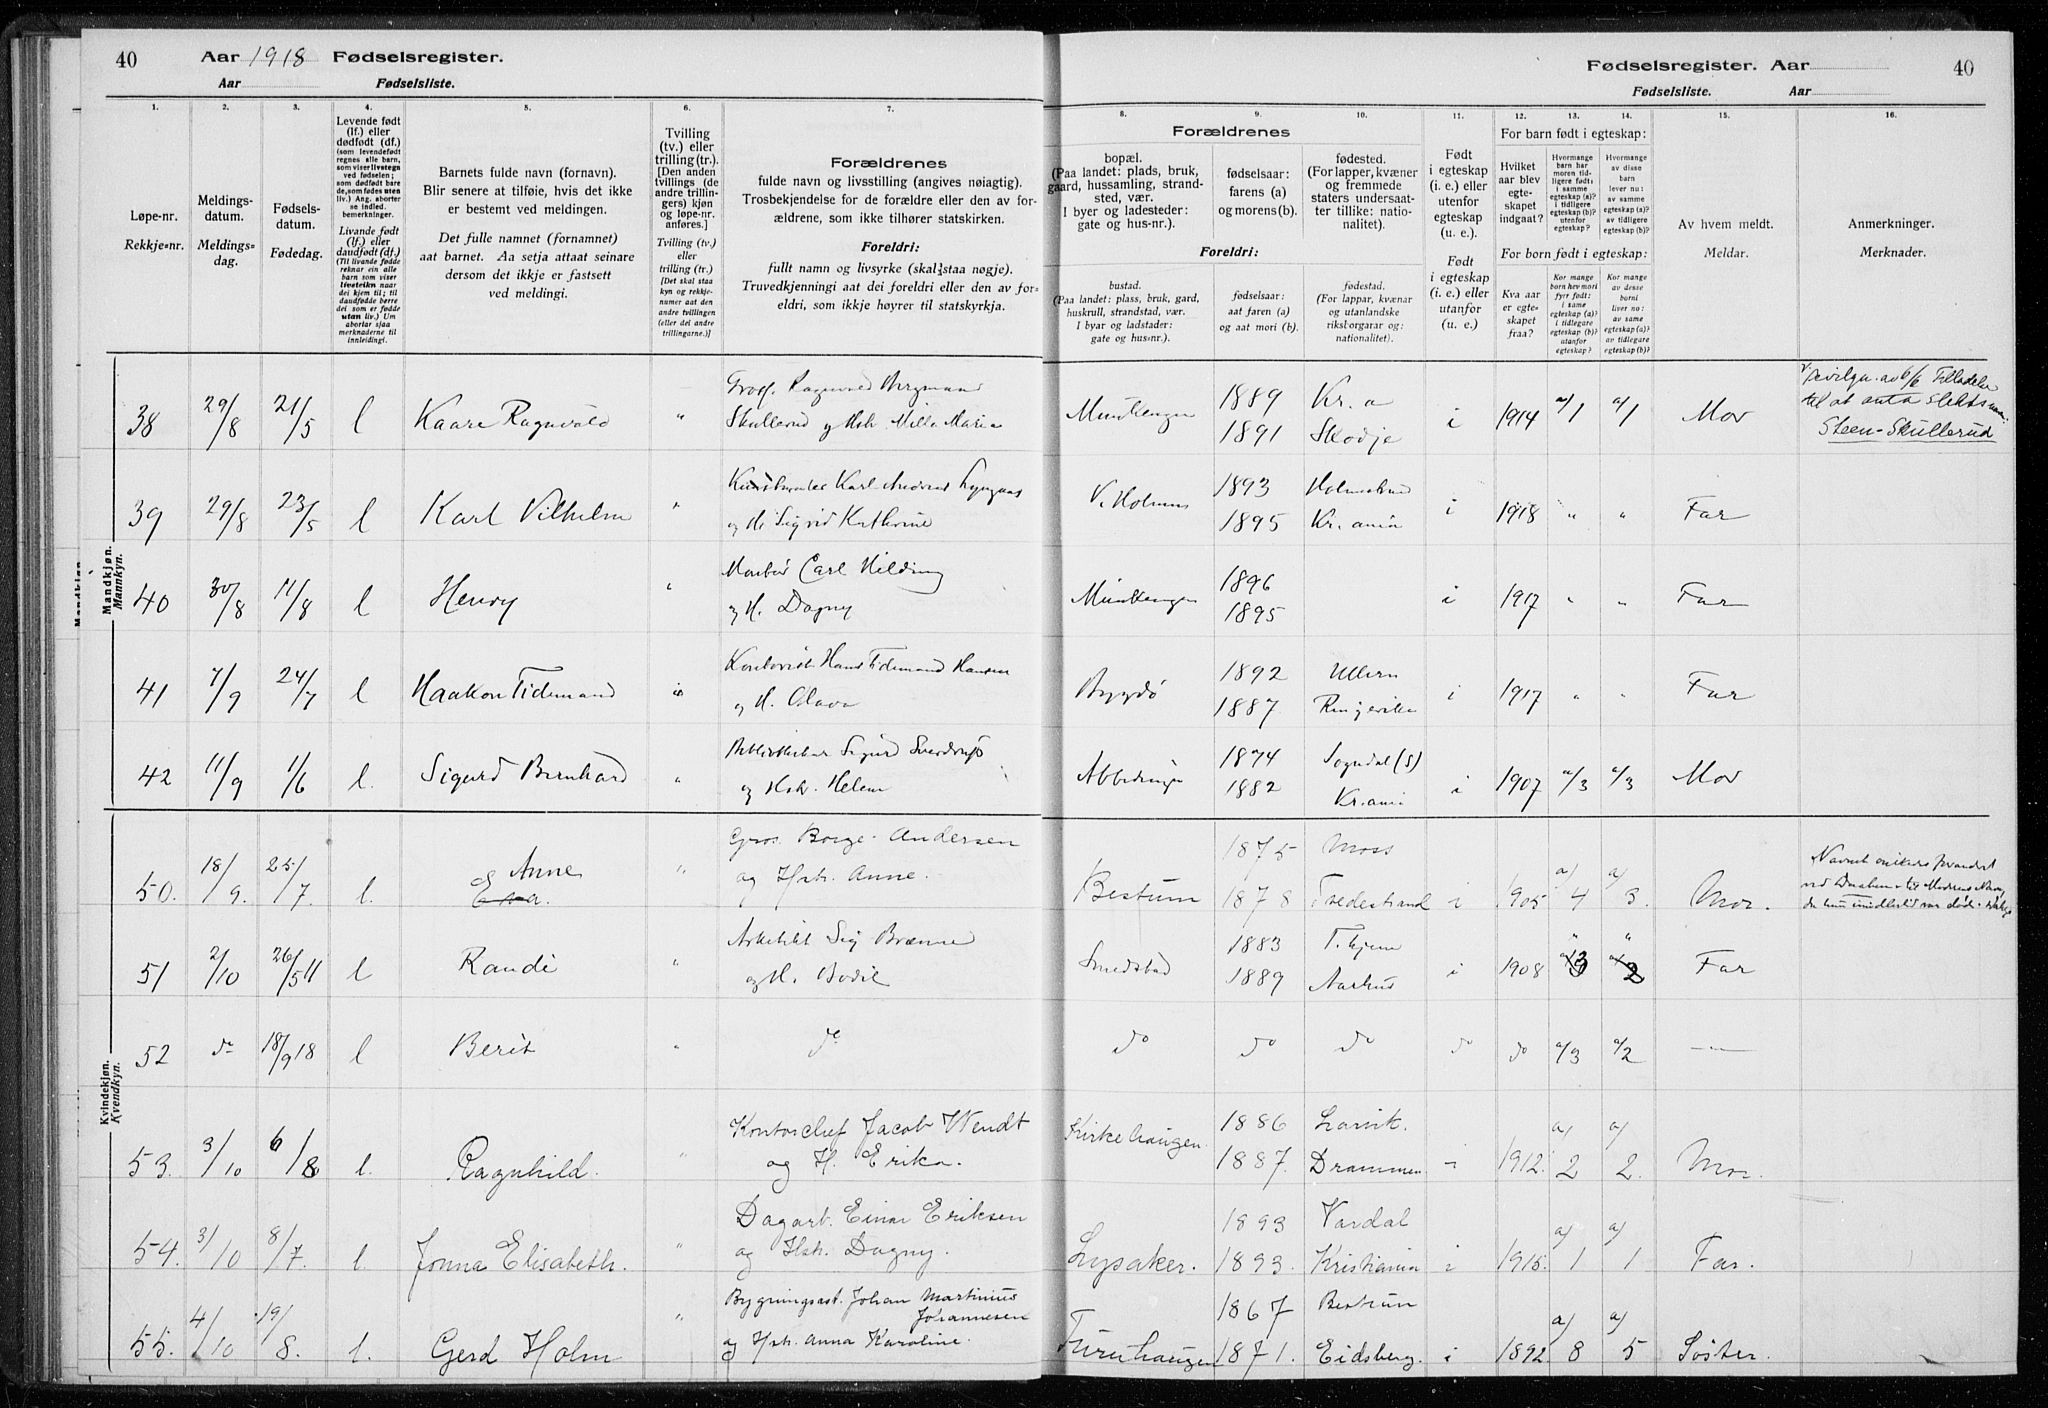 40 Aar 1918 Fødselsregister.
Aar Fødselsliste.
Fødselsregister. Aar 40
Fødselsliste. Aar
1. 2. 3. 4. 5. 6. 7. 8. 9. 10. 11. 12. 13. 14. 15. 16.
Løpe-nr.
Rekkje-nr.
Meldings-
datum.
Meldings-
dag.
Fødsels-
datum.
Fødedag.
Levende født
(lf.) eller
dødfødt (df.)
(som levendefødt
regnes alle barn,
som viser livstegn
ved fødselen;
som dødfødt bare
de, som fødes uten
liv.) Ang. aborter
se indled.
bemerkninger.
Livande født
(lf.) eller
daudfødt (df.)
(Til livande fødde
reknar ein alle
barn som viser
livsteikn naar
dei kjem til; til
daudfødde berre
dei som er fødde
utan liv.) Um
abortar sjaa
merknaderne til
innleidingi.
Barnets fulde navn (fornavn).
Blir senere at tilføie, hvis det ikke
er bestemt ved meldingen.
Det fulle namnet (fornamnet)
aat barnet. Aa setja attaat seinare
dersom det ikkje er fastsett
ved meldingi.
Tvilling
(tv.) eller
trilling (tr.).
[Den anden
tvillings (de
andre trillin-
gers) kjøn
og løpe-nr.
anføres.]
Tvilling (tv.)
eller
trilling (tr.)
[Det skal staa
kyn og rekkje-
numer aat den
andre tvillingen
(eller dei andre
trillingarne.)]
Forældrenes
fulde navn og livsstilling (angives nøiagtig).
Trosbekjendelse for de forældre eller den av for-
ældrene, som ikke tilhører statskirken.
Foreldri:
fullt namn og livsyrke (skal staa nøgje).
Truvedkjenningi aat dei foreldri eller den av for-
eldri, som ikkje høyrer til statskyrkja.
Forældrenes
bopæl.
(Paa landet: plads, bruk,
gaard, hussamling, strand-
sted, vær.
I byer og ladesteder:
gate og hus-nr.).
fødselsaar:
farens (a)
og morens (b).
fødested.
(For lapper, kvæner
og fremmede
staters undersaat-
ter tillike: natio-
nalitet).
Foreldri:
bustad.
(Paa landet: plass, bruk, gard,
huskrull, strandstad, vær.
I byar og ladstader:
gate og hus-nr.).
fødselsaar:
aat faren (a)
og aat mori (b).
fødestad.
(For lappar, kvænar
og utanlandske
riksborgarar og:
nationalitet).
Født
i egteskap
(i. e.) eller
utenfor
egteskap
(u. e.).
Født
i egteskap
(i. e.) eller
utanfor
(u. e.)
For barn født i egteskap:
Hvilket
aar blev
egte-
skapet
indgaat?
Hvormange
barn har
moren tid-
ligere født:
i samme
egteskap (a)?
i tidligere
egteskap (b)?
utenfor
egteskap?
Hvormange
av disse
barn
lever nu:
av samme
egteskap (a)?
av tidligere
egteskap (b)?
For barn født i egteskap:
Kva aar
er egte-
skapet
fraa?
Kor mange
born hev mori
fyrr født:
i same
egteskap (a)?
i tidlegare
egteskap (b)?
utanfor
egteskap?
Kor mange
av desse
borni
liver no:
av same
egteskap (a)?
av tidlegare
egteskap (b)?
Av hvem meldt.
Meldar.
Anmerkninger.
Merknader.
Mandkjøn.
Mannkyn.
38 29/8 21/5 l Kaare Ragnvald " Gross. Ragnvald Bergman
Skullerud og Hstr. Milla Maria
Munkengen 1889 1891 Kr.a Skodje i 1914 a/1 a/1 Mor
til at anta slektsnavn:
Steen-Skullerud
39 29/8 23/5 l Karl Vilhelm " Karl Andreas
og H. Sigrid Kathrine
V. Holmen 1893 1895 Holmestrand Kr.ania i 1918 " " Far
40 30/8 11/8 l Henry " Carl Hilding
og H. Dagny
Munkengen 1896 1895 i 1917 " " Far
41 7/9 24/7 l Haakon Tidemand " Kontorist Hans Tidemand Hansen
og H. Olava
Bygdø 1892 1887 Ullern Ringerike i 1917 " " Far
42 11/9 1/6 l. Sigurd Bernhard " Sigurd Sverdrup
og Hstr. Helene
Abbedingen 1874 1882 Sogndal (S) Kr.ania i 1907 a/3 a/3 Mor
Kvindekjøn.
Kvendkyn.
50. 18/9. 25/7. l. Anne
Ena. " Gros. Børge Andersen
og Hstr. Anne.
Bestum 1875 1878 Moss Tvedestrand i 1905 a/4 a/3. Mor.
51 2/10 26/5 11 l Randi " Arkitekt Sig Brænne
og H. Bodil
Smedstad 1883 1889 T.hjem Aarhus i 1908 " 3 " 2 Far
52 do 18/9 18 l Berit " do do do do do do a/3 a/2 —
53. 3/10 6/8 l. Ragnhild. " Kontorchef Jacob Wendt
og H. Erika.
Kirkehaugen. 1886 1887. Larvik. Drammen i 1912. a/2 a/2. Mor.
54. 3/10 8/7. l. Jonna Elisabeth. " Dagarb. Einar Eriksen
og Hstr. Dagny.
Lysaker. 1893 1893. Vardal Kristiania i 1915. a/1 a/1 Far.
55. 4/10 19/8. l. Gerd Holm " Bygningsast. Johan Martinius
Johannesen
og Hstr. Anna Karoline.
Furuhaugen 1867 1871. Bestum Eidsberg. i 1892 a/8 a/5 Søster.